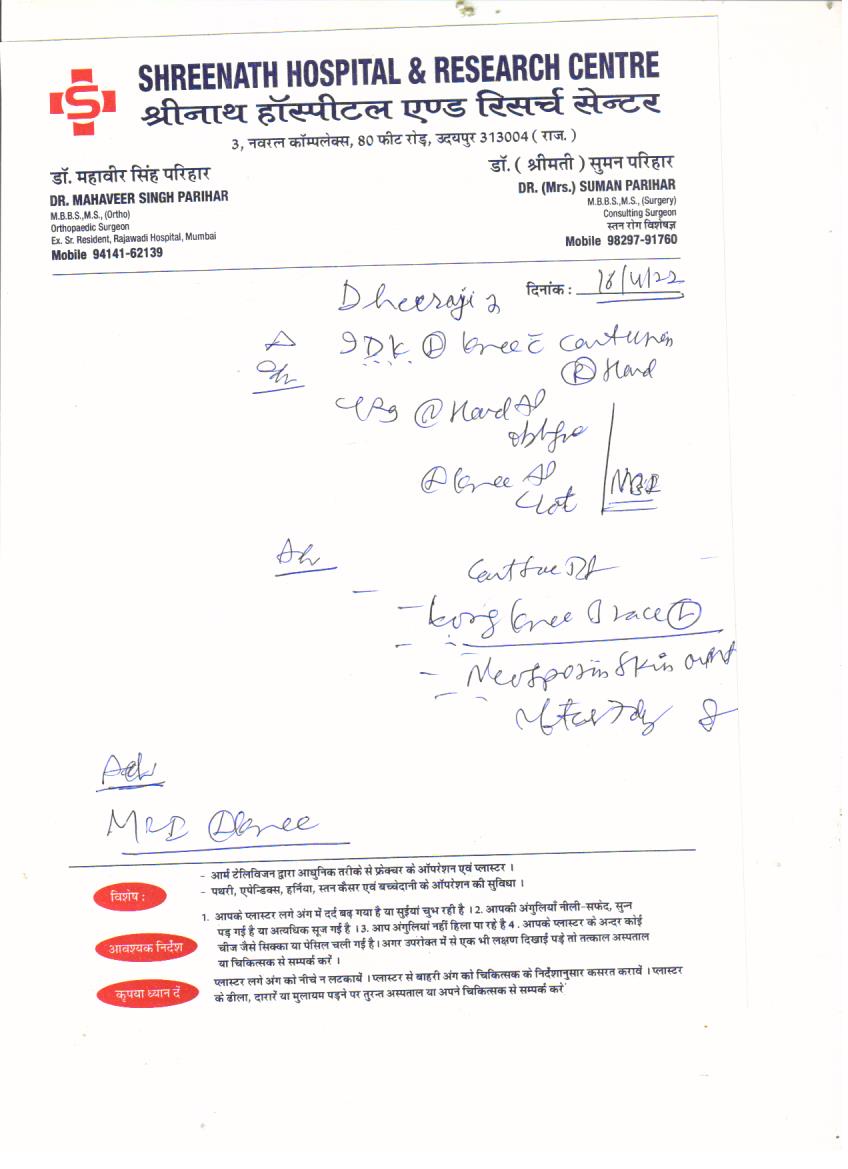 SHREENATH HOSPITAL & RESEARCH CENTRE
श्रीनाथ हॉस्पीटल एण्ड रिसर्च सेन्टर
3, नवरत्न कॉम्पलेक्स, 80 फीट रोड़, उदयपुर 313004 ( राज. )
डॉ. महावीर सिंह परिहार
DR. MAHAVEER SINGH PARIHAR
M.B.B.S.,M.S., (Ortho)
Orthopaedic Surgeon
Ex. Sr. Resident, Rajawadi Hospital, Mumbai
Mobile 94141-62139
डॉ. ( श्रीमती ) सुमन परिहार
DR. (Mrs.) SUMAN PARIHAR
M.B.B.S.,M.S., (Surgery)
Consulting Surgeon
स्तन रोग विशेषज्ञ
Mobile 98297-91760
दिनांक :
Dheeraj
IDK knee
(R) Hand
Hand
knee
MRI
Long knee Brace (L)
Neosporin Skin
Adv
MRI knee
विशेष :
- आर्म टेलिविजन द्वारा आधुनिक तरीके से फ्रेक्चर के ऑपरेशन एवं प्लास्टर ।
- पथरी, एपेन्डिक्स, हर्निया, स्तन कैंसर एवं बच्चेदानी के ऑपरेशन की सुविधा ।
आवश्यक निर्देश
1. आपके प्लास्टर लगे अंग में दर्द बढ़ गया है या सुईयां चुभ रही है । 2. आपकी अंगुलियाँ नीली-सफेद, सुन्न
पड़ गई है या अत्यधिक सूज गई है । 3. आप अंगुलियां नहीं हिला पा रहे है 4 . आपके प्लास्टर के अन्दर कोई
चीज जैसे सिक्का या पेंसिल चली गई है । अगर उपरोक्त में से एक भी लक्षण दिखाई पड़े तो तत्काल अस्पताल
या चिकित्सक से सम्पर्क करें ।
कृपया ध्यान दें
प्लास्टर लगे अंग को नीचे न लटकायें । प्लास्टर से बाहरी अंग को चिकित्सक के निर्देशानुसार कसरत करावें । प्लास्टर
के ढीला, दारारें या मुलायम पड़ने पर तुरन्त अस्पताल या अपने चिकित्सक से सम्पर्क करें